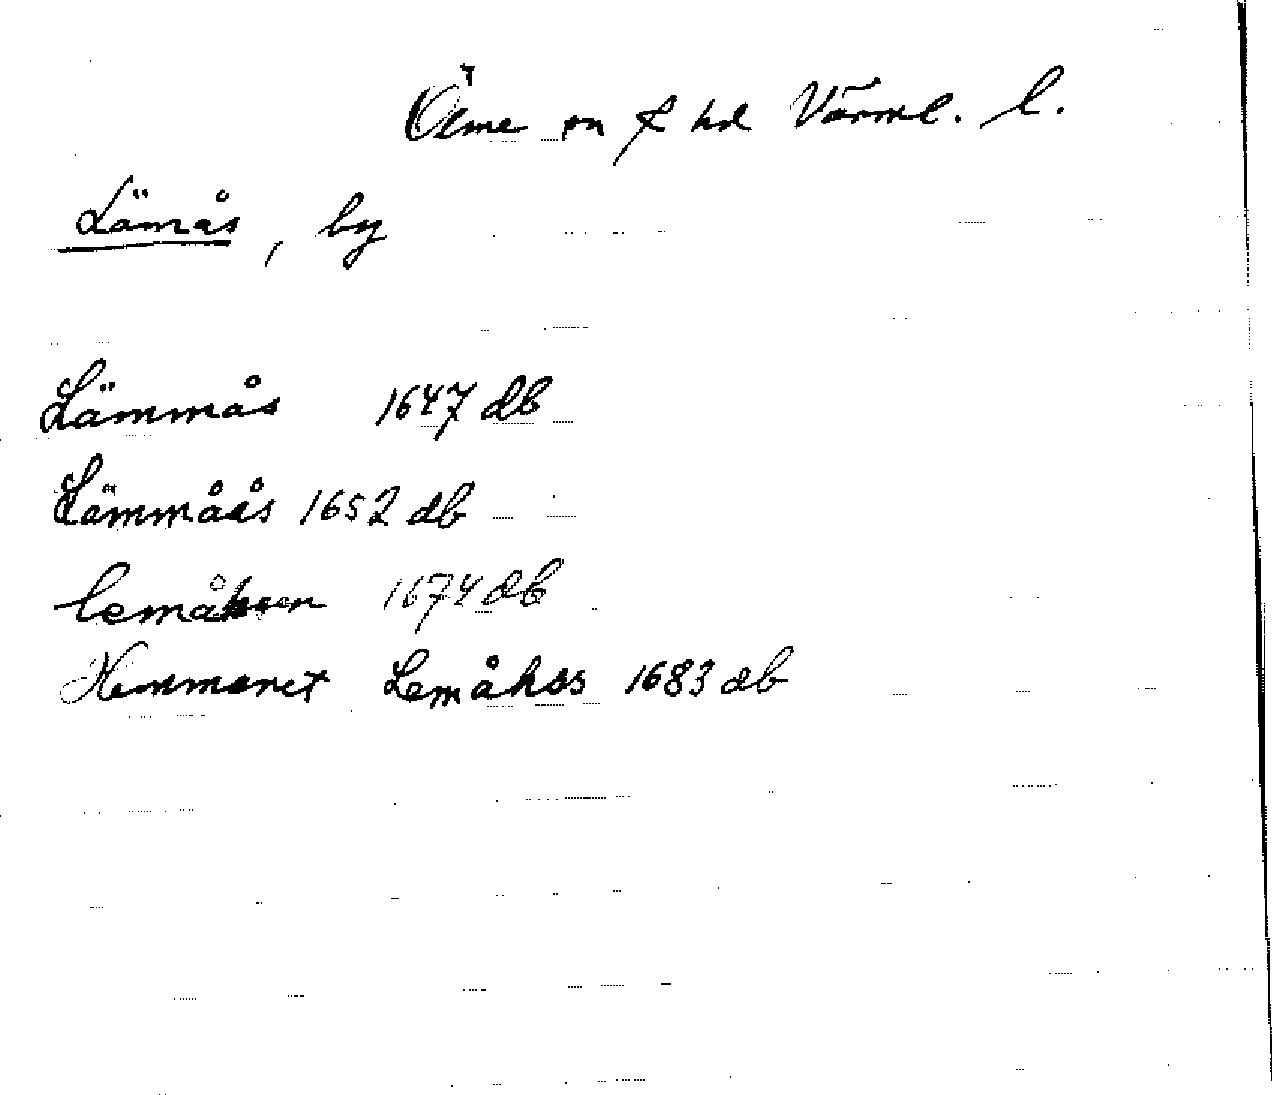 Ölme sn o hd Värml. l.
Lämås, by
Lämmås 1647 db
Lämmåås 1652 db
Lemåhsen 1674 db
Hemmanet Lemåhss 1683 db